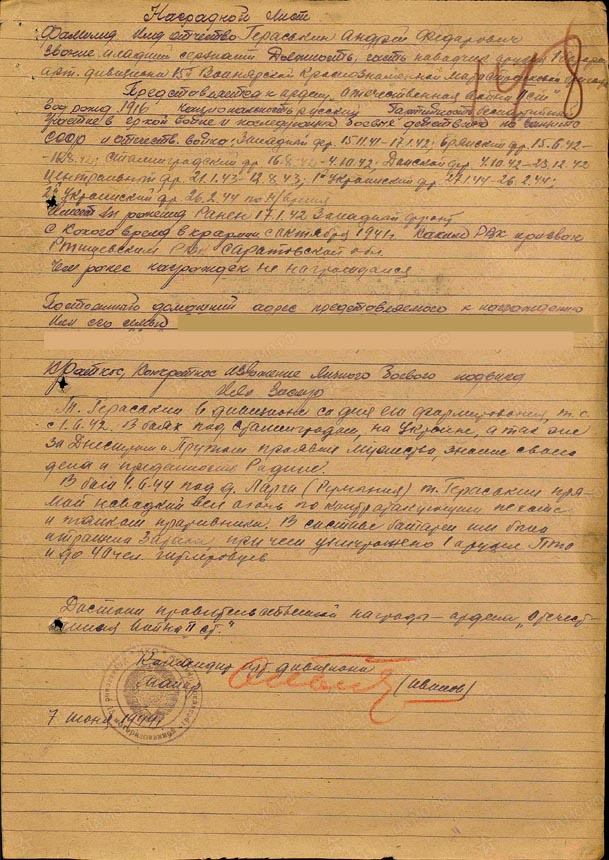 Наградной лист
Фамилия Имя отчество Гераськин Андрей Федорович
звание младший сержант Должность, часть наводчик орудия
арт. дивизиона 15й Краснознаменной
Представляется к ордену „Отечественная война II ст"
год рожд 1916 Национальность русский Партийность беспартийный
Участие в и последующих боевых действиях по защите
СССР и отечеств. войне: Западный фр 15.11.41-17.1.42; Брянский фр. 15.6.42-
16.8.42; Сталинградский фр 16.8.42-4.10.42; Донской фр. 4.10.42-23.12.42
Центральный фр. 21.1.43-12.8.43; 1й Украинский фр. 27.1.44-26.2.44;
2й Украинский фр. 26.2.44 по н/время
Имеет ли ранения Ранен 17.1.42 Западный фронт
С какого врем в кр армии с октября 1941г. Каким РВК призван
Ртищевским РВК Саратовской обл.
Чем ранее награжден не награждался
Постоянный домашний адрес представляемого к награждению
или его семьи
Краткое, конкретное изложение личного боевого подвига
или заслуг
Т. Гераськин в дивизионе со дня его формирования, т.е.
с 1.6.42. В боях под Сталинградом, на Украине, а так же
за Днестром и Прутом проявил мужество, знание своего
дела и преданность Родине.
В бою 4.6.44 под д. Ларга (Румыния) т. Гераськин пря-
мой наводкой вел огонь по контратакующим пехоте
и танкам противника. В составе батареи им была
отражена при чем уничтожено 1 орудие ПТО
и до 40 чел. гитлеровцев
Достоин правительственной награды - ордена „Отечест-
венная война II ст."
Командир арт дивизиона
Майор (Иванов)
7 июня 1944г.